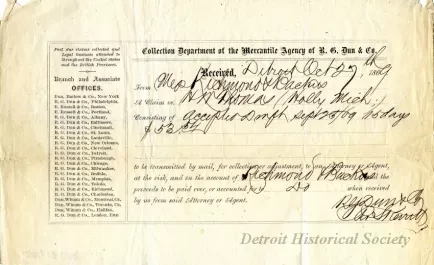 Past due claims collected and
Legal business attended to
throughout the United States
and the British Provinces.
Branch and Associate
OFFICES.
Dun, Barlow & Co., New York
R. G. Dun & Co., Philadelphia,
E. Russell & Co., Boston,
E. Russell & Co., Portland,
R. G. Dun & Co., Albany,
R. G. Dun & Co., Baltimore,
R. G. Dun & Co., Cincinnati,
R. G. Dun & Co., St. Louis,
R. G. Dun & Co., Louisville,
R. G. Dun & Co., New Orleans,
R. G. Dun & Co., Cleveland,
R. G. Dun & Co., Detroit,
R. G. Dun & Co., Pittsburgh,
R. G. Dun & Co., Chicago,
R. G. Dun & Co., Milwaukee,
R. G. Dun & Co., Buffalo,
R. G. Dun & Co., Memphis,
R. G. Dun & Co., Toledo,
R. G. Dun & Co., Richmond,
R. G. Dun & Co., Charleston,
Dun, Wiman & Co., Montreal, Ca.
Dun, Wiman & Co., Toronto, Ca.
Dun, Wiman & Co., Halifax,
R. G. Dun & Co., London, Eng.
Collection Department of the Mercantile Agency of R. G. Dun & Co.
Received, Detroit Oct 27th 1869
From Richmond & Backus
A Claim vs. Holly Mich
Consisting of Accepted Draft Sept 23/69 45 days
$ 52
to be transmitted by mail, for collection or adjustment, to an Attorney or Agent,
at the risk, and on the account of Richmond & Backus the
proceeds to be paid over, or accounted for to Do when received
by us from said Attorney or Agent.
R G Dun & Co
Detroit Historical Society